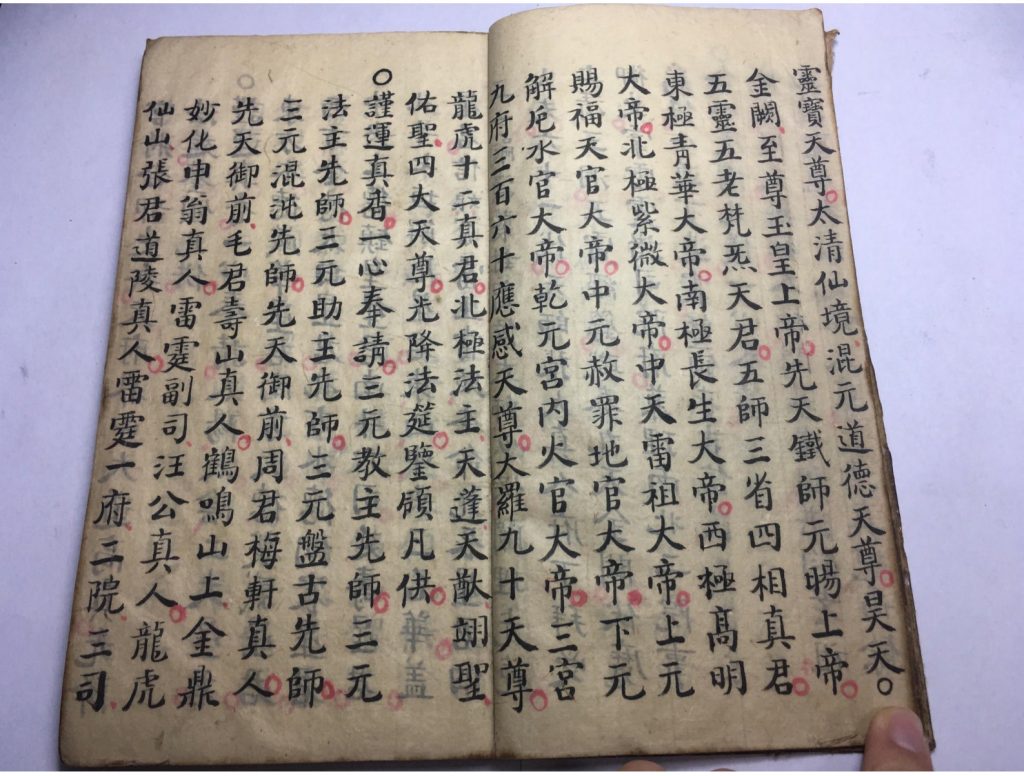 靈寶天尊太清仙境混元道德天尊昊天
金闕至尊玉皇上帝先天鐵師元暘上帝
五靈五老梵炁天君五師三省四相真君
東極青華大帝南極長生大帝西極高明
大帝北極紫微大帝中天雷祖大帝上元
賜福天官大帝中元赦罪地官大帝下元
解厄水官大帝乾元宮內火官大帝三宮
九府三百六十應感天尊大羅九十天尊
龍虎十二真君北極法主天蓬天猷翊聖
佑聖四大天尊光降法筵鑒領凡供
○謹運真香錦心奉請三元教主先師三元
法主先師三元助主先師三元盤古先師
三元混沌先師先天御前周君梅軒真人
先天御前毛君壽山真人鶴鳴山上金鼎
妙化申翁真人雷霆副司汪公真人龍虎
仙山張君道陵真人雷霆一府二院三司